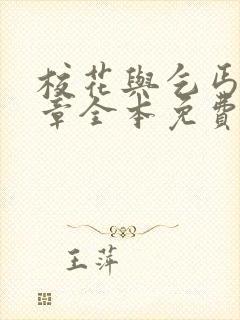 校花與乞丐
章全本免費
王萍